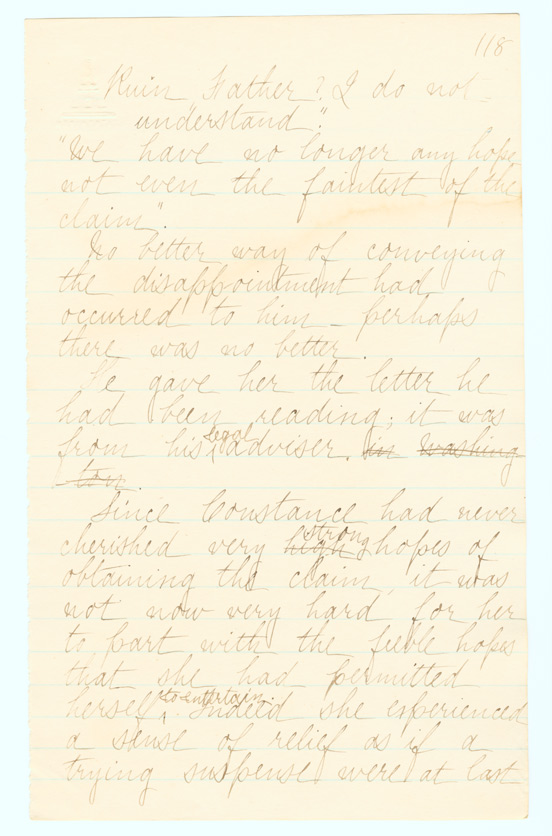 118
Ruin Father? I do not
understand".
"We have no longer any hope
not even the faintest of the
claim".
No better way of conveying
the disappointment had
occurred to him – perhaps
there was no better.
He gave her the letter he
had been reading; it was
from his legal adviser. in washing
ton.
Since Constance had never
cherished very high strong hopes of
obtaining the claim, it was
not now very hard for her
to part with the feeble hopes
that she had permitted
herself to entertain. Indeed she experienced
a sense of relief as if a
trying suspense were at last